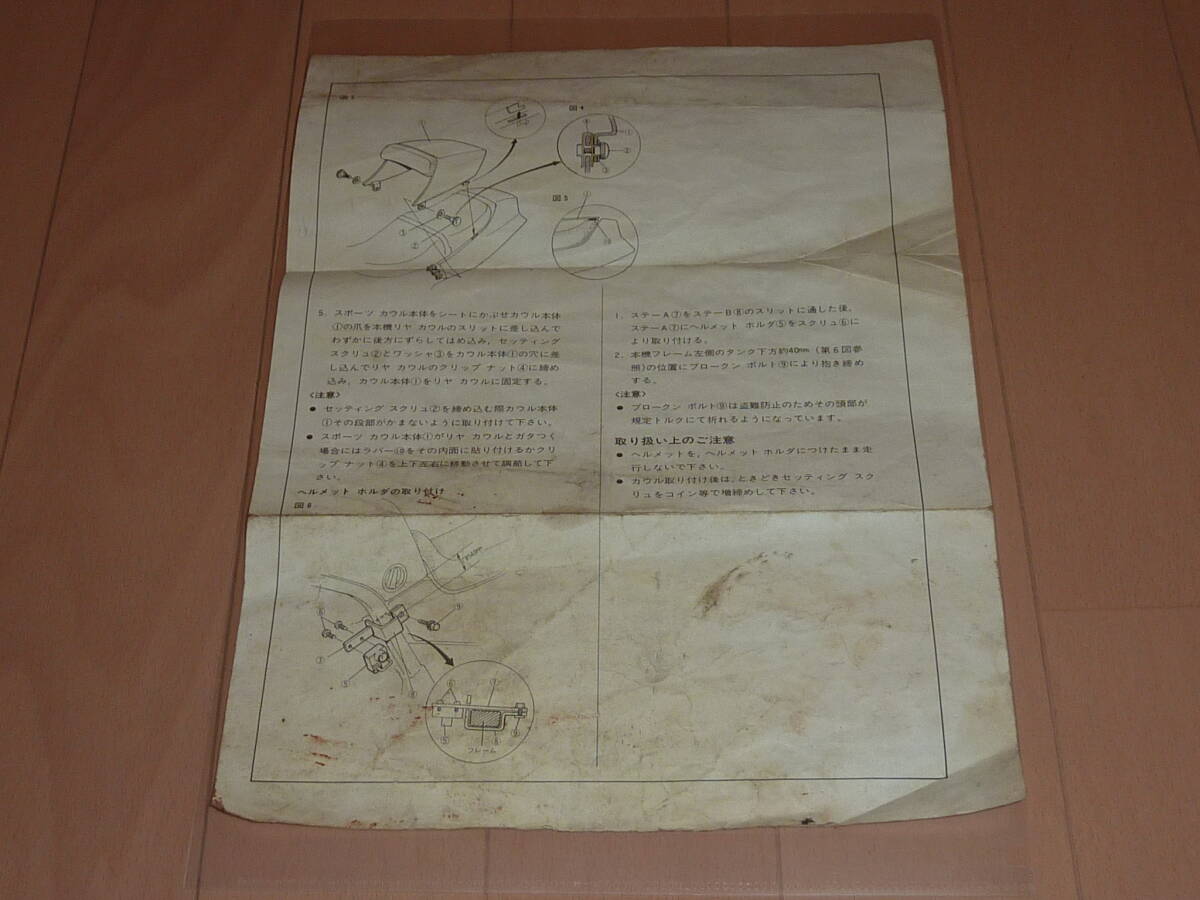 図3
図4
図5
5. スポーツ カウル本体をシートにかぶせカウル本体
①の爪を本機リヤ カウルのスリットに差し込んで
わずかに後方にずらしてはめ込み, セッティング
スクリュ②とワッシャ③をカウル本体①の穴に差
し込んでリヤ カウルのクリップ ナット④に締め
込み, カウル本体①をリヤ カウルに固定する。
〈注意〉
● セッティング スクリュ②を締め込む際カウル本体
①その段部がかまないように取り付けて下さい。
● スポーツ カウル本体①がリヤ カウルとガタつく
場合にはラバー⑩をその内面に貼り付けるかクリ
ップ ナット④を上下左右に移動させて調節して下
さい。
ヘルメット ホルダの取り付け
図6
1. ステーA⑦をステーB⑧のスリットに通した後,
ステーA⑦にヘルメット ホルダ⑤をスクリュ⑥に
より取り付ける。
2. 本機フレーム左側のタンク下方約40mm (第6図参
照)の位置にブロークン ボルト⑨により抱き締め
する。
〈注意〉
● ブロークン ボルト⑨は盗難防止のためその頭部が
規定トルクにて折れるようになっています。
取り扱い上のご注意
● ヘルメットを, ヘルメット ホルダにつけたまま走
行しないで下さい。
● カウル取り付け後は, ときどきセッティング スク
リュをコイン等で増締めして下さい。
フレーム